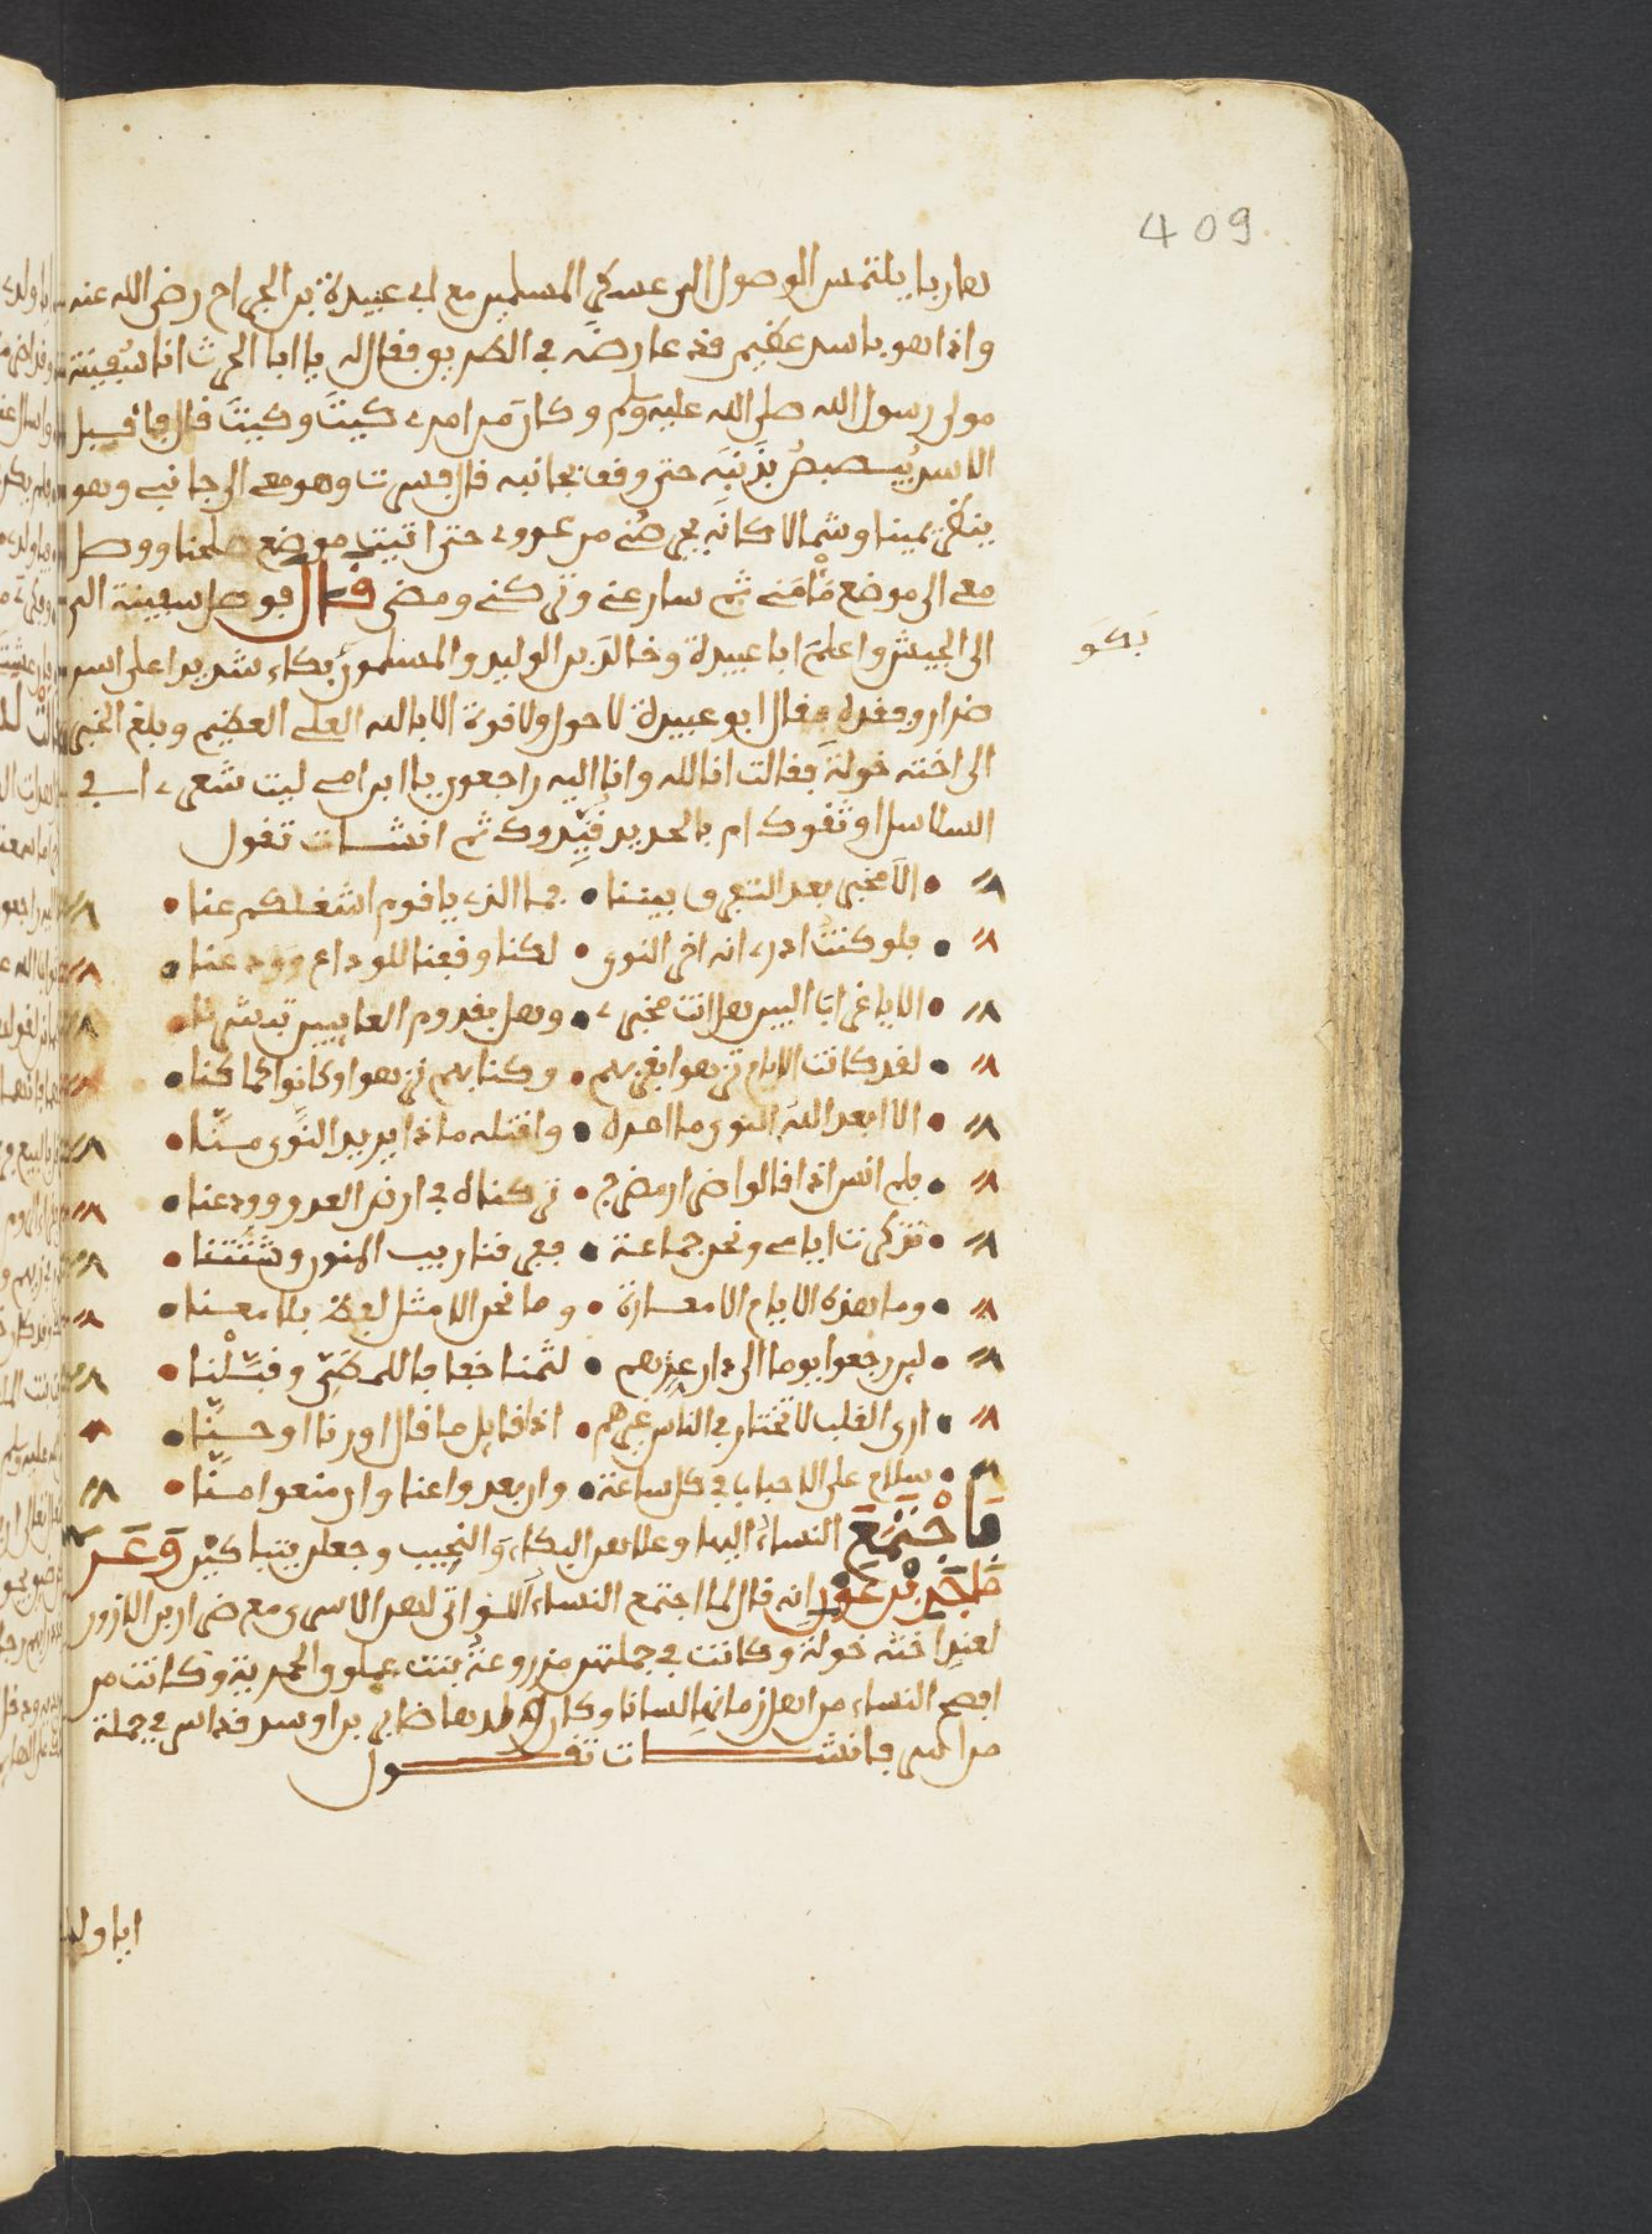 409
هاربا يلتمس الوصول الى عسكر المسلمين مع ابي عبيدة بن الجراح رضي الله عنه
واذا هو باسد عظيم قد عارضه في الطريق فقال له يا ابا الحرث انا سفينة
مولى رسول الله صلى الله عليه وسلم وكان من امري كيت وكيت قال فاقبل
الاسد يبصبص بذنبه حتى وقف بجانبه قال فسرت وهو معي الى جانبي وهو
ينظر يمينا وشمالا كانه يحرضني من عدوي حتى اتيت موضع صلحنا ووصل
معي الى موضع مأمنه ثم سار عني وتركني ومضى قال فوصل سفينة الى
الى الجيش واعلم ابا عبيدة وخالد بن الوليد والمسلمون بكاء شديدا على اسر
بكو
ضرار وفقده فقال ابو عبيدة لا حول ولا قوة الا بالله العلي العظيم وبلغ الخبر
الى اخته خولة فقالت انا لله وانا اليه راجعون يا ابن امي ليت شعري افي
السلاسل اوثقوك ام بالحديد قيدوك ثم انشات تقول
الا مخبر بعد التفرق بيننا • فما الذي يا قوم اشغلكم عنا
فلو كنت ادري انه اخر النوى • لكنا وقفنا للوداع وودعنا
الا يا غراب البين هل انت مخبري • وهل بقدوم الغايبين تبشرنا
لقد كانت الايام تزهوا بقربهم • وكنا بهم نزهوا وكانوا كما كنا
الا ابعد الله النوى ما امره • واقتله ماذا يريد النوى منا
فلم انس اذ قالوا ضرار مضرج • تركناه في ارض العدو وودعنا
تذكرت ايامي ونحن جماعة • ففرقنا ريب المنون وشتتنا
وما هذه الايام الا معارة • وما نحن الا مثل لفظ بلا معنا
لين رجعوا يوما الى دار عزهم • لثمنا خفافا للمطي وقبلنا
ارى القلب لا تختار في الناس غيرهم • اذا قايل ما قال اورنا او حسنا
سلام على الاحباب في كل ساعة • وان بعدوا عنا وان منعوا منا
فاجتمع النساء اليها وعلا هن البكاء والنحيب وجعلن يتباكين وعن
طلحة بن عوف انه قال لما اجتمع النساء اللواتي لهن الاسرى مع ضرار بن الازور
لعند اخته خولة وكانت في جملتهن مزروعة بنت عملوق الحميرية وكانت من
افصح النساء من اهل زمانها لسانا وكان ولدها صابر بن اوس قد اسر في جملة
من اسر فانشات تقول
ايا ولد